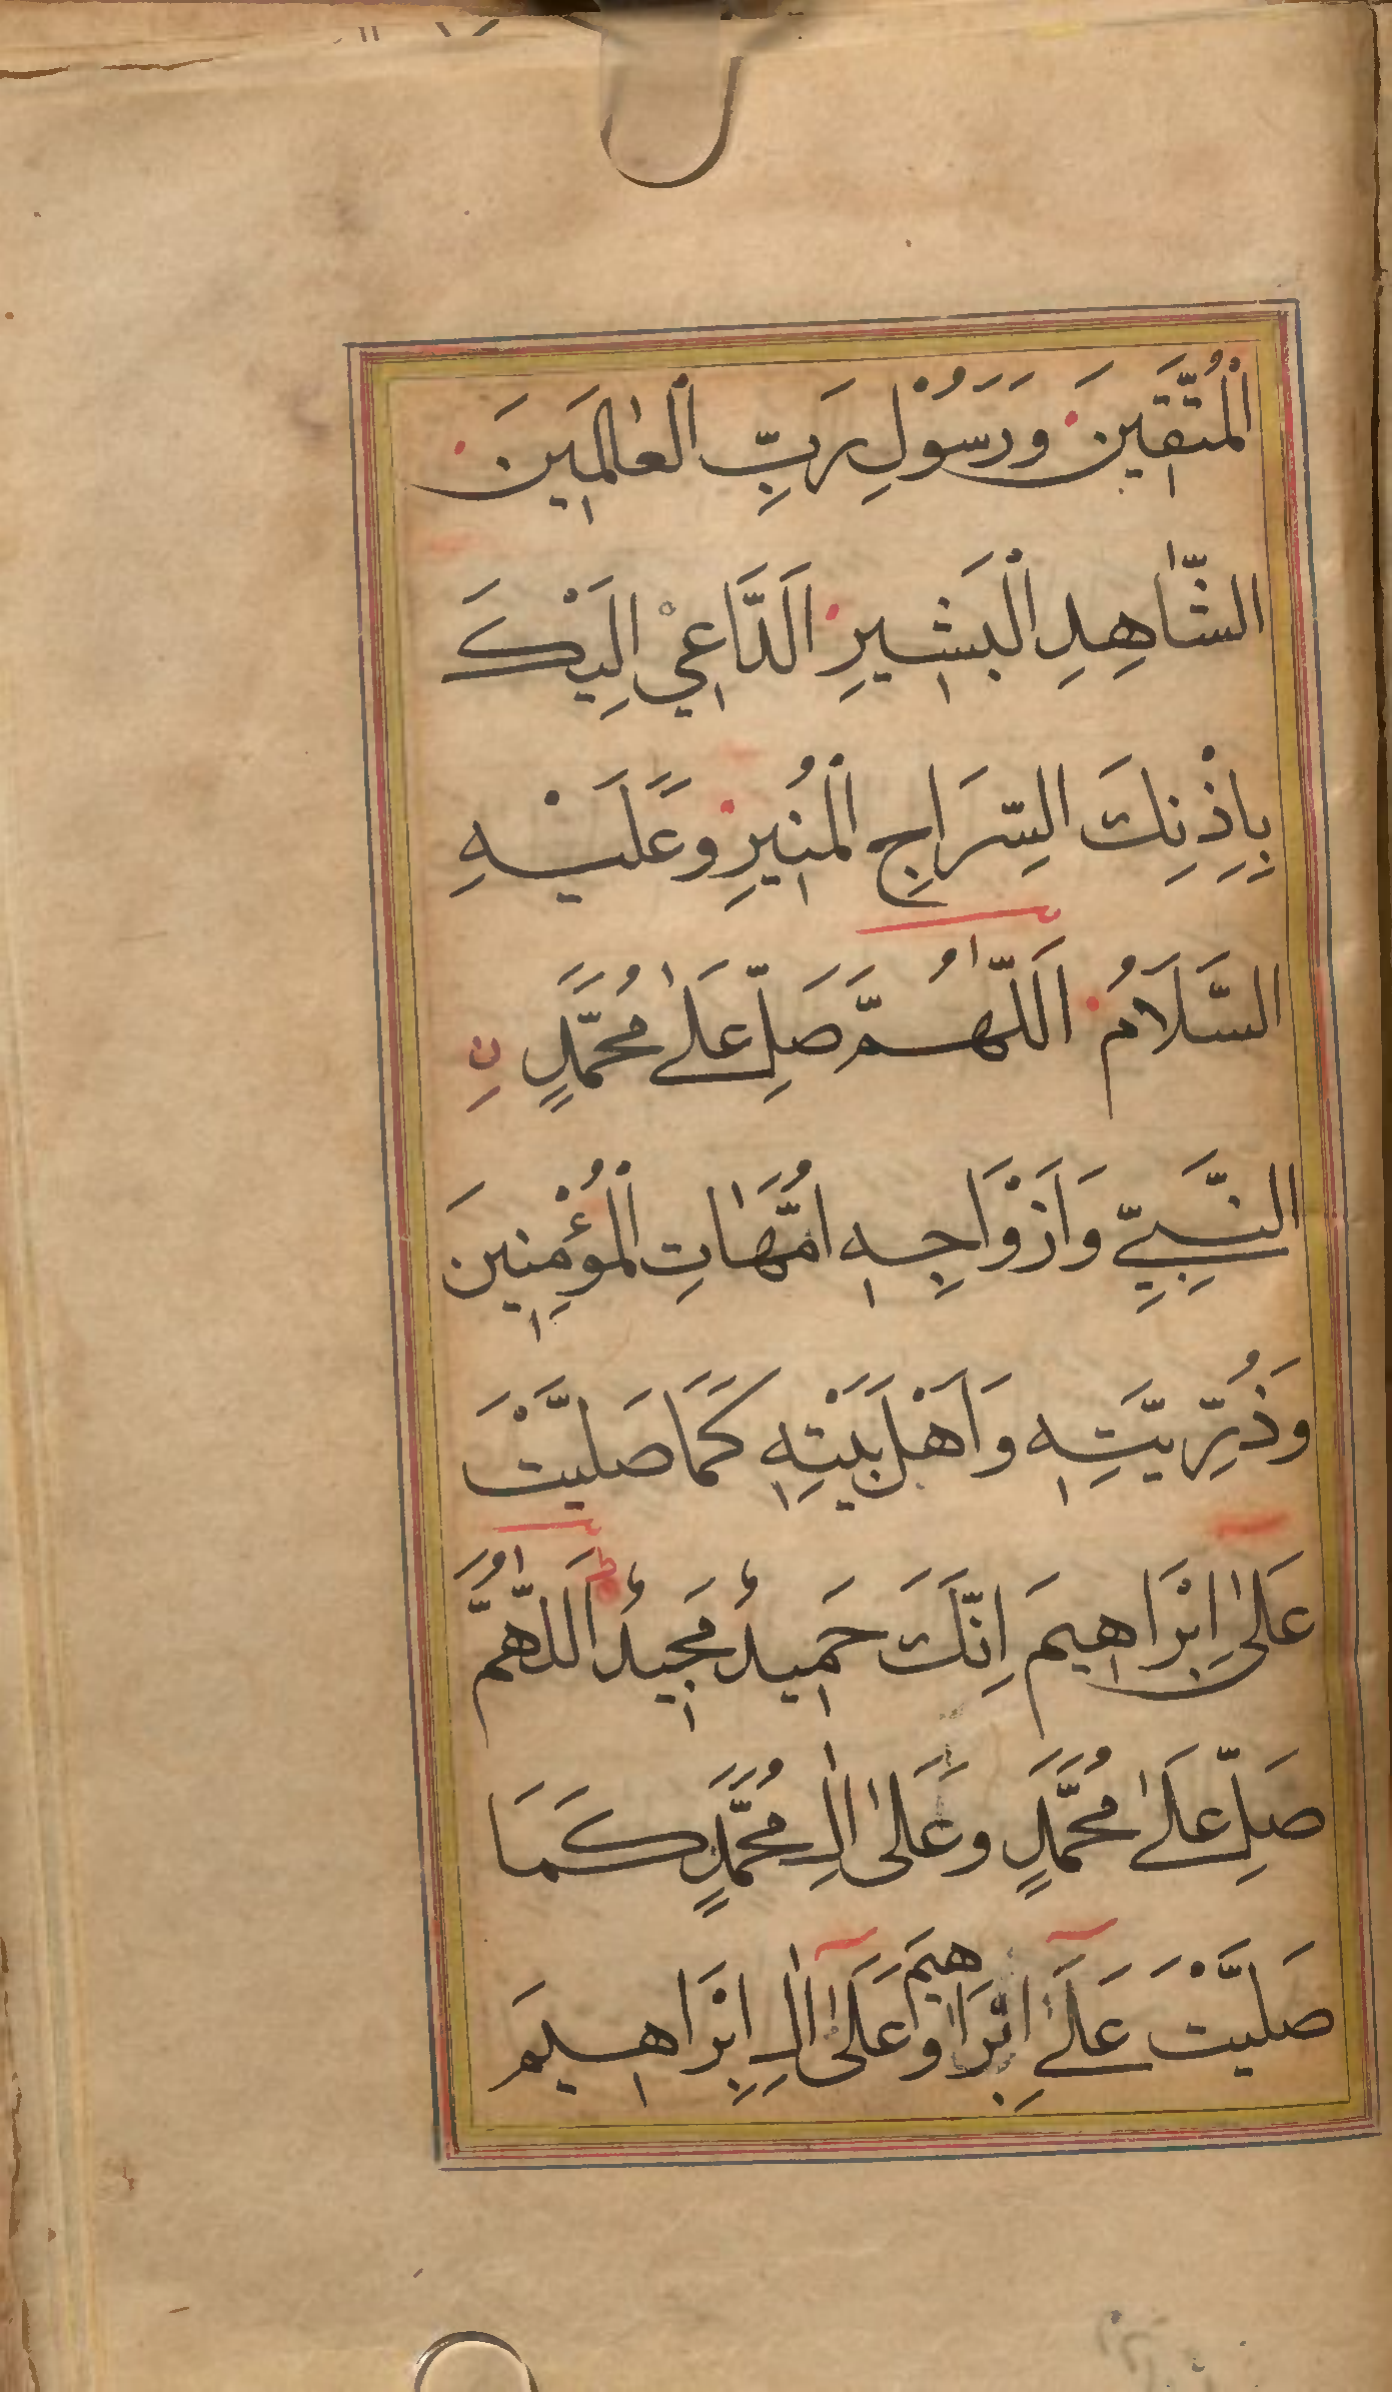 الْمُتَّقِينَ وَرَسُوْلِ رَبِّ الْعٰالَمِينَ
الشَّاهِدِ الْبَشِيرِ اَلدَّاعِيْ اِلَيْكَ
بِاِذْنِكَ السِّرَاجِ الْمُنِيرِ وَعَلَيْهِ
السَّلَامُ اَللّٰهُمَّ صَلِّ عَلٰى مُحَمَّدٍ نِ
النَّبِيِّ وَاَزْوَاجِهِ اُمَّهَاتِ الْمُؤْمِنِينَ
وَذُرِّيَّتِهِ وَاَهْلِ بَيْتِهِ كَمَا صَلَّيْتَ
عَلٰى اِبْرَاهِيمَ اِنَّكَ حَمِيدٌ مَجِيدٌ اَللّٰهُمَّ
صَلِّ عَلٰى مُحَمَّدٍ وَعَلٰى اٰلِ مُحَمَّدٍ كَمَا
صَلَّيْتَ عَلٰى اِبْرَاهِيمَ وَعَلٰى اٰلِ اِبْرَاهِيمَ